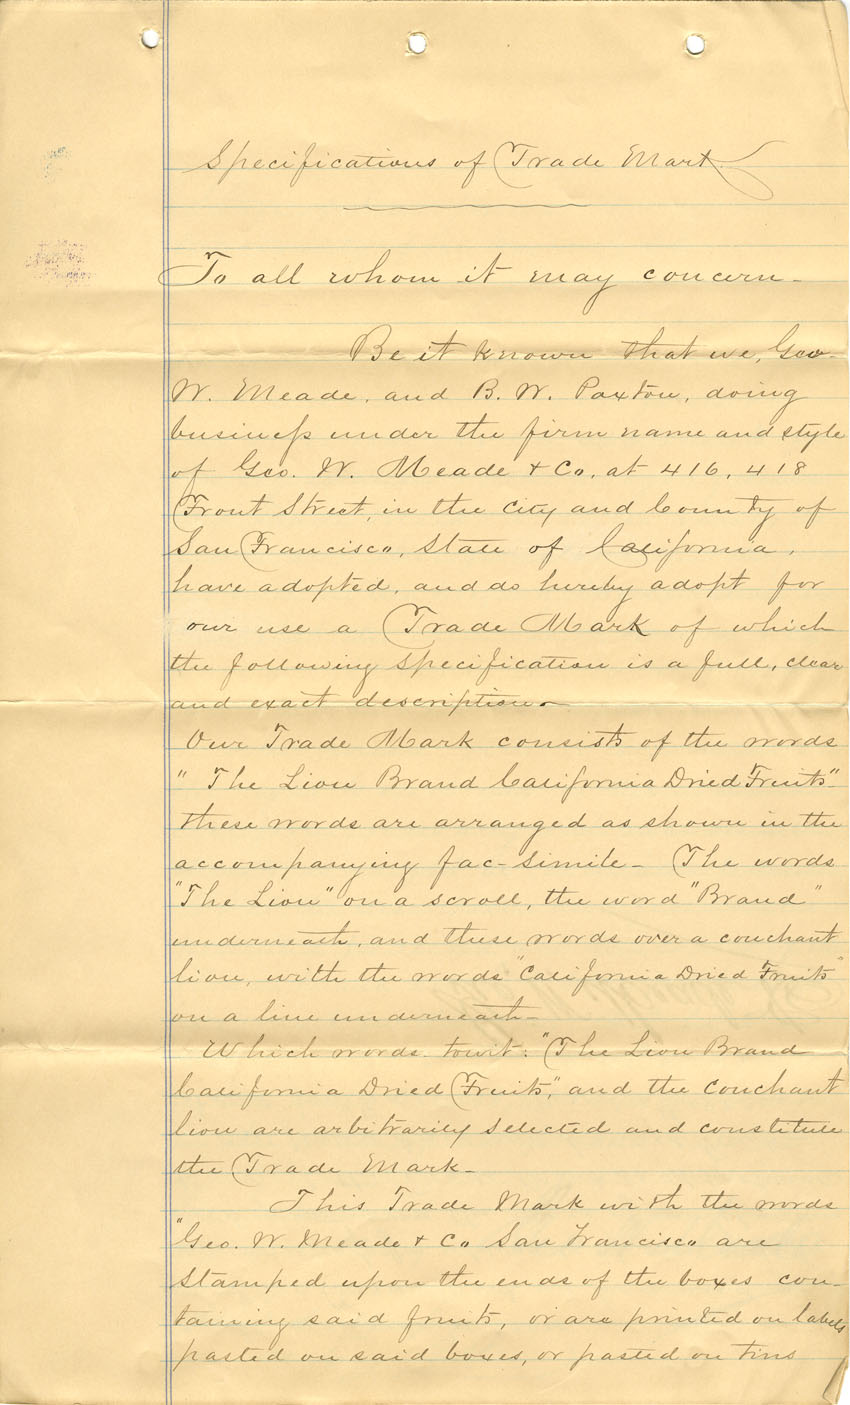 Specifications of Trade Mark
To all whom it may concern -
Be it known that we, Geo.
W. Meade, and B. W. Paxton, doing
business under the firm name and style
of Geo. W. Meade & Co, at 416, 418
Front Street, in the City and County of
San Francisco, State of California,
have adopted, and do hereby adopt for
our use a Trade Mark of which
the following specification is a full, clear
and exact description -
Our Trade Mark consists of the words
" The Lion Brand California Dried Fruits"
these words are arranged as shown in the
accompanying fac-simile - The words
"The Lion" on a scroll, the word "Brand"
underneath, and these words over a couchant
lion, with the words "California Dried Fruits"
on a line underneath -
Which words towit: "The Lion Brand
California Dried Fruits", and the Couchant
lion are arbitrarily selected and constitute
the Trade Mark -
This Trade Mark with the words
"Geo. W. Meade & Co San Francisco are
Stamped upon the ends of the boxes con-
taining said fruits, or are printed on labels
pasted on said boxes, or pasted on tins